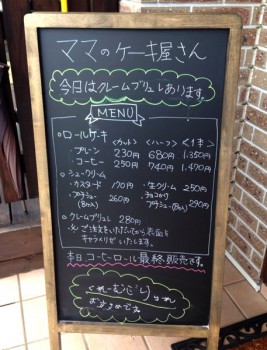 ママのケーキ屋さん
今日はクレームブリュレあります。
MENU
ロールケーキ 〈カット〉 〈ハーフ〉 〈1本〉
・プレーン 230円 680円 1,350円
・コーヒー 250円 740円 1,470円
シュークリーム
・カスタード 170円 ・生クリーム 250円
・プチシュー(8コ入) 260円 ・チョコがけプチシュー(8コ入) 290円
クレームブリュレ 280円
※ご注文をいただいてから表面を
キャラメリゼいたします。
本日コーヒーロール最終販売です。
くれーむぶりゅれ
おすすめでえ